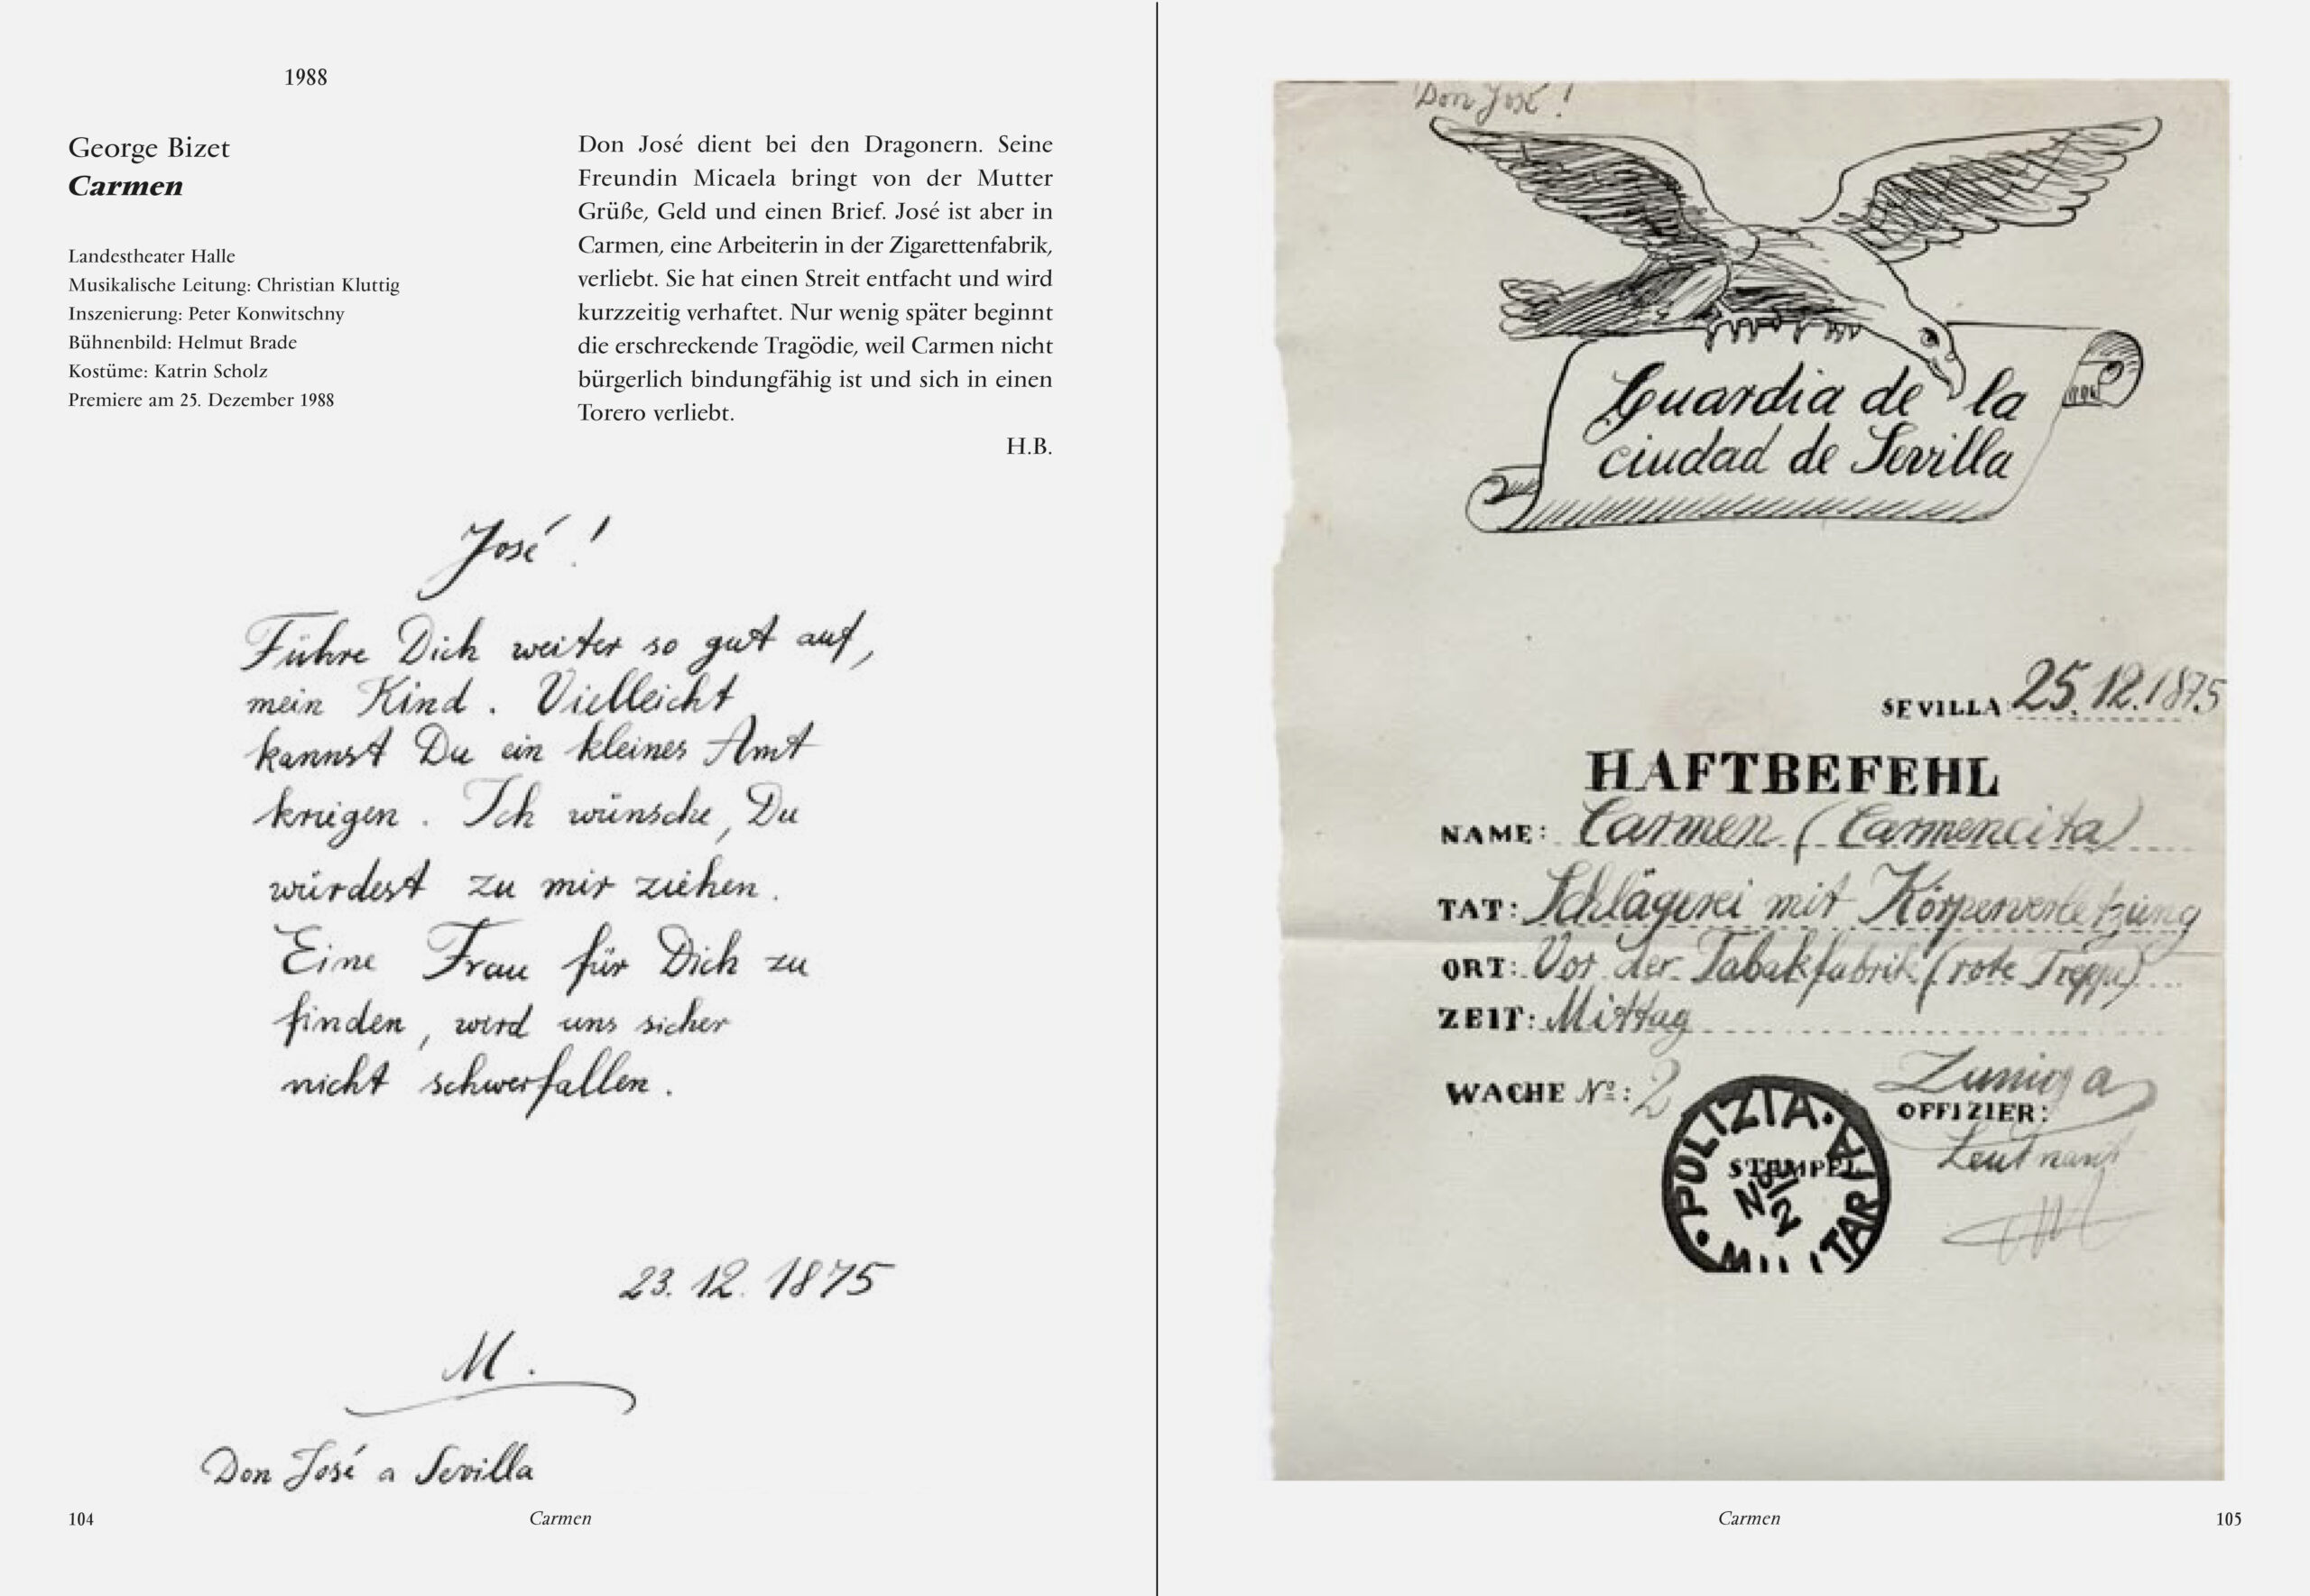 1988
George Bizet
Carmen
Landestheater Halle
Musikalische Leitung: Christian Kluttig
Inszenierung: Peter Konwitschny
Bühnenbild: Helmut Brade
Kostüme: Katrin Scholz
Premiere am 25. Dezember 1988
Don José dient bei den Dragonern. Seine
Freundin Micaela bringt von der Mutter
Grüße, Geld und einen Brief. José ist aber in
Carmen, eine Arbeiterin in der Zigarettenfabrik,
verliebt. Sie hat einen Streit entfacht und wird
kurzzeitig verhaftet. Nur wenig später beginnt
die erschreckende Tragödie, weil Carmen nicht
bürgerlich bindungfähig ist und sich in einen
Torero verliebt.
H.B.
José!
Führe Dich weiter so gut auf,
mein Kind. Vielleicht
kannst Du ein kleines Amt
kriegen. Ich wünsche, Du
würdest zu mir ziehen.
Eine Frau für Dich zu
finden, wird uns sicher
nicht schwerfallen.
23. 12. 1875
M.
Don José a Sevilla
104
Carmen
Don José!
Guardia de la
ciudad de Sevilla
SEVILLA 25.12.1875
HAFTBEFEHL
NAME: Carmen (Carmencita)
TAT: Schlägerei mit Körperverletzung
ORT: Vor der Tabakfabrik (rote Treppe)
ZEIT: Mittag
WACHE No: 2
Zuniga
OFFIZIER:
Leutnant
POLIZIA MILITAR
STEMPEL
No 2
Carmen
105